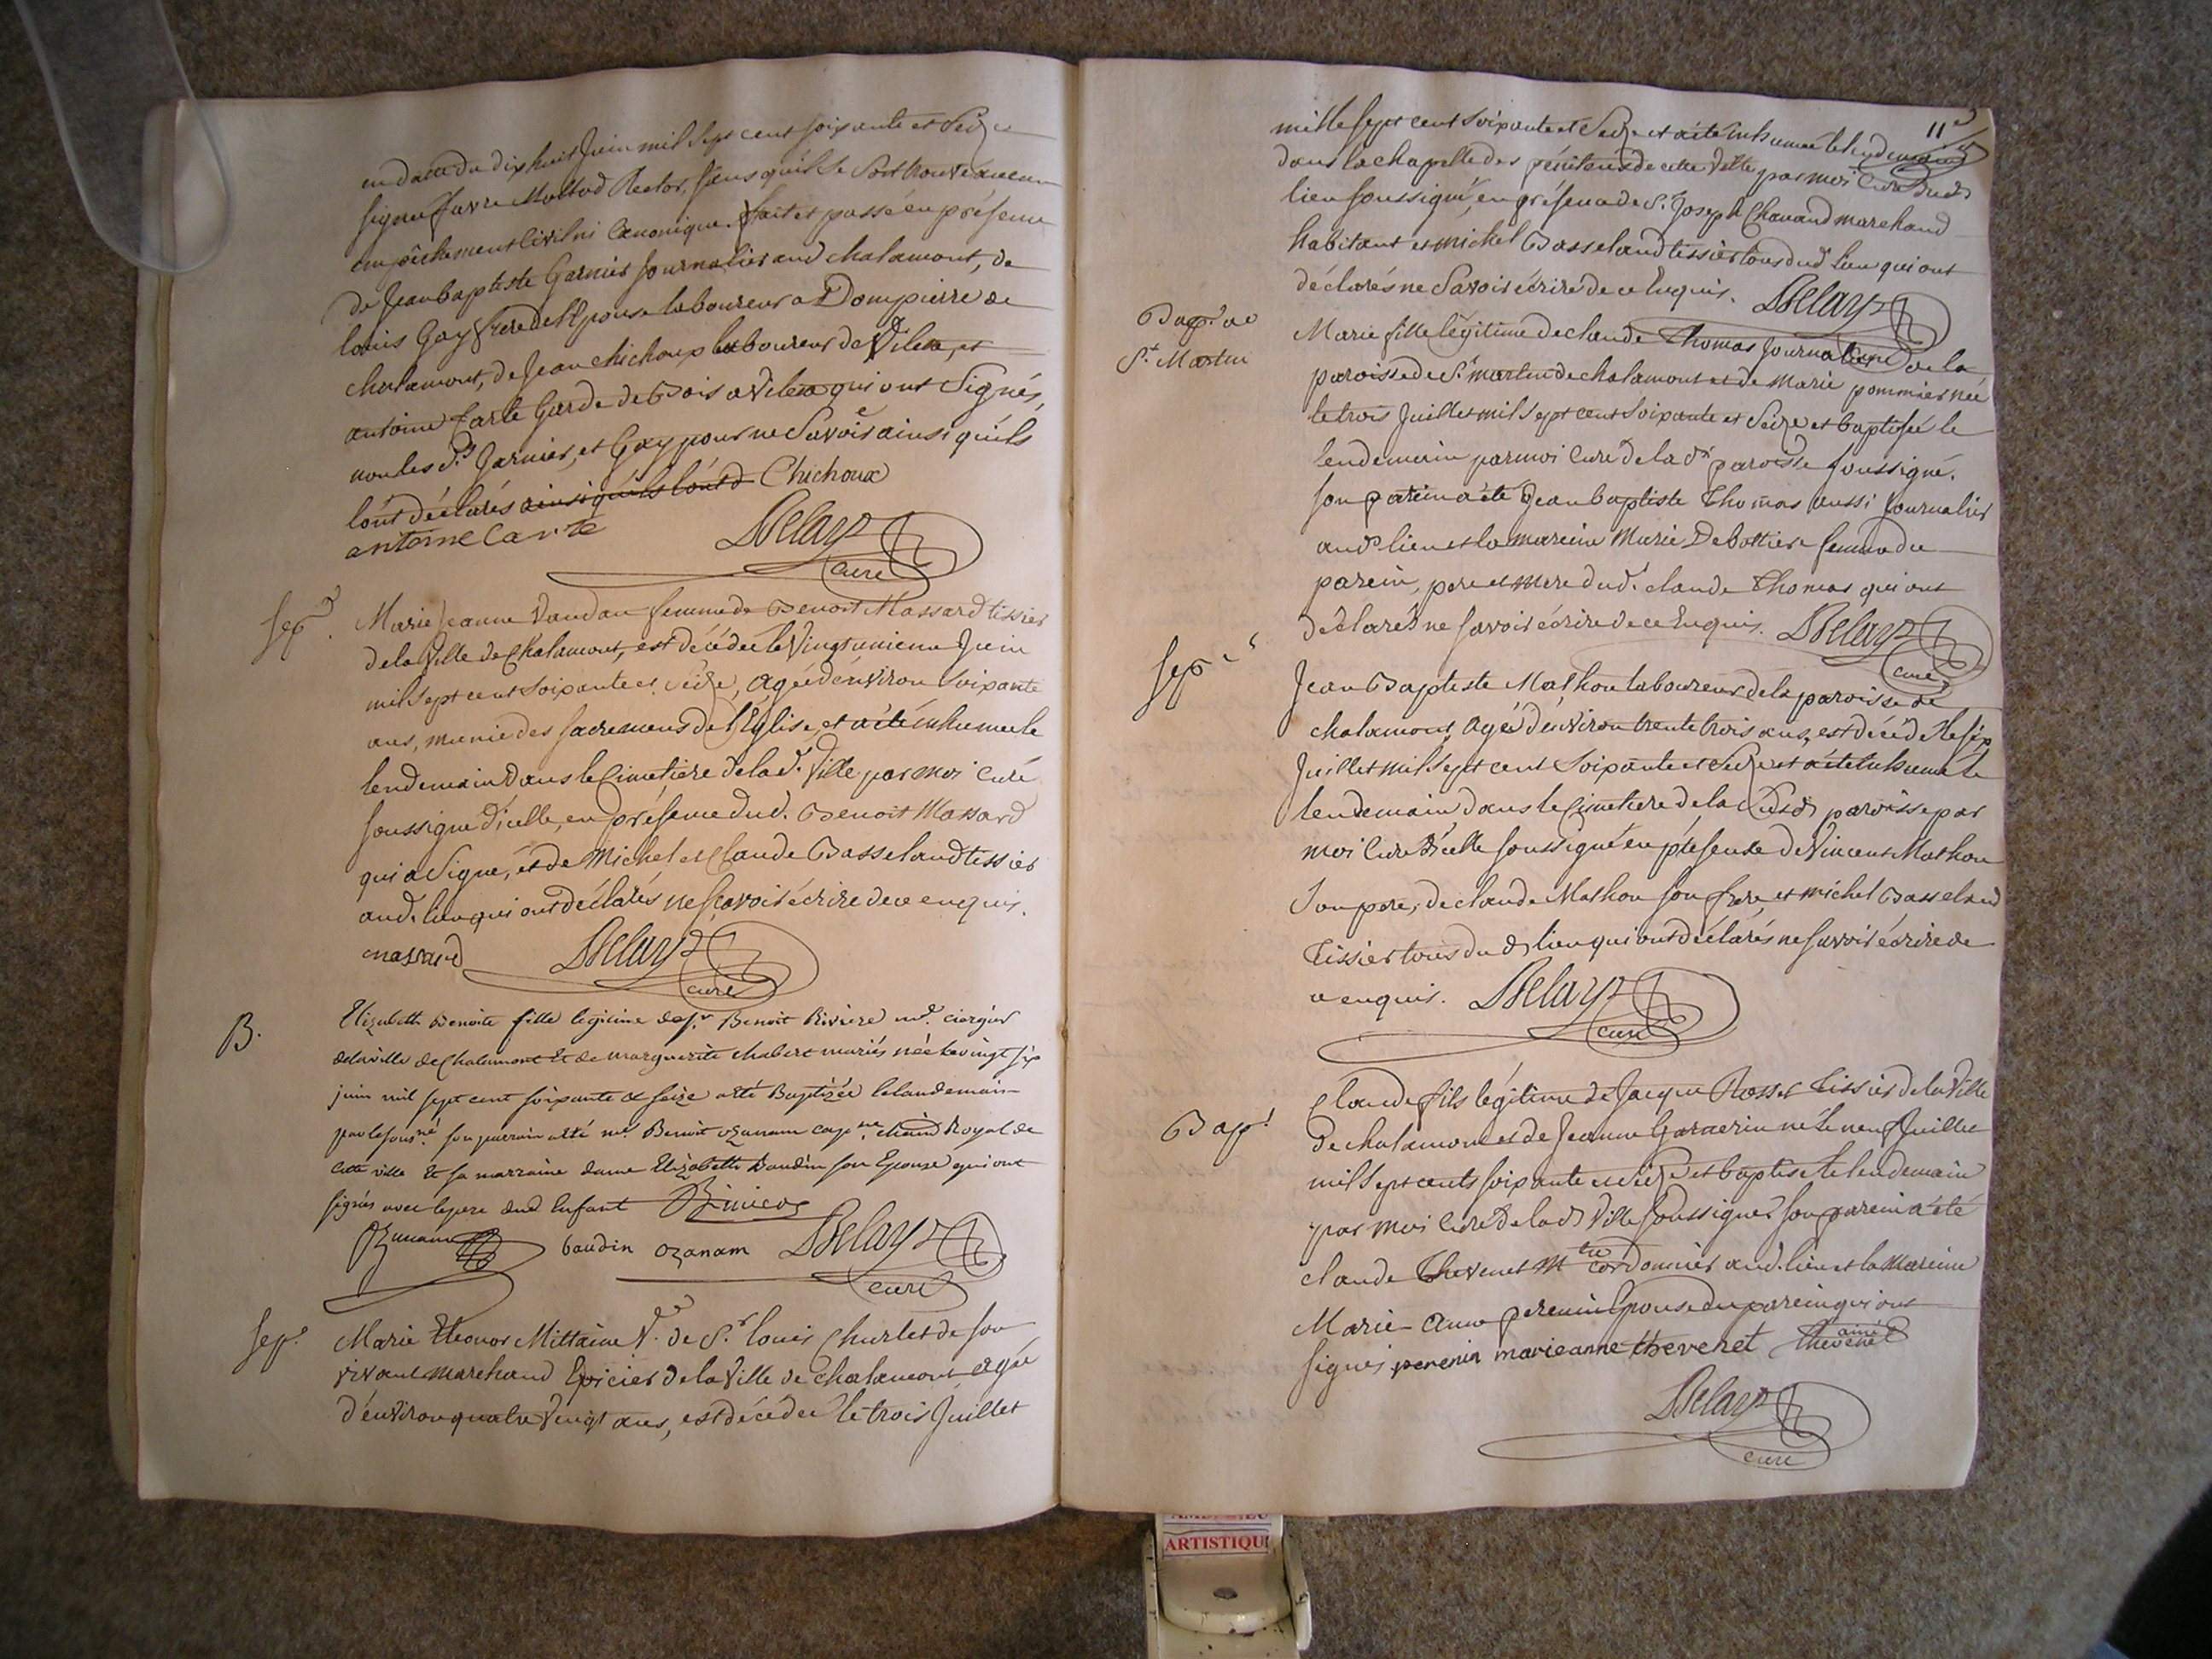 en datte du dix huit Juin mil Sept cent soixante et Seize
signé favre Maltod Rector, sans qu'il se Soit trouvé aucun
empêchement Civil ni Canonique. fait et passé en présence
de Jean baptiste Garnier Journalier aud chalamont, de
louis Gay frere de l'Epouse laboureur a Dompierre de
chalamont, de Jean chichoux laboureur de Vilette, et
antoine Carte Garde de Bois a Vilette qui ont Signés,
non les d.ts Garnier, et Gay pour ne Savoir ainsi quils
lont déclarés ainsi quils lont d Chichoux
antoine Carte
Delay
curé
sep.
Marie Jeanne Vaudan femme de Benoit Massard tissier
de la Ville de Chalamont, est décédée le Vingt unieme Juin
mil Sept cent Soixante et Seize, agée d'environ Soixante
ans, munie des sacremens de l'Église, et a été inhumée le
lendemain dans le Cimetiere de la d. Ville par moi Curé
soussigné d'icelle, en présence dud. Benoit Massard
qui a Signé, et de Michel et Claude Basseland tissier
aud. lieu qui ont déclarés ne scavoir écrire de ce enquis.
massard Delay
curé
B.
Elizabeth Benoite fille legitime de s.r Benoit Riviere m.d ciergier
de la ville de Chalamont et de marguerite chabert mariés née le vingt six
juin mil sept cent soixante et seize a été Baptizée le landemain
par le sous.né son parrain a été m.e Benoit ozanam cap.ne chatd Royal de
cette ville et sa marraine dame Elizabeth Baudin son Epouse qui ont
signés avec le pere dud Enfant Riviere
Ozanam baudin ozanam Delay
curé
Sep.e
Marie Eleonor Mittaine V.e de S.r louis Churlet de son
vivant marchand Epicier de la Ville de chalamont agée
d'environ quatre Vingt ans, est décédée le trois Juillet
11e
mille sept cent soixante et Seize et a été inhumée le lendemain
dans la chapelle des pénitens de cette Ville par moi Curé dud
lieu soussigné, en présence de S. Joseph Chavand marchand
habitant et michel Basseland tissier tous dud lieu qui ont
déclarés ne Savoir écrire de ce Enquis. Delay
Bap.t de
S.t Martin
Marie fille légitime de claude Thomas Journalier de la
paroisse de S.t martin de chalamont et de Marie pommier née
le trois Juillet mil Sept cent Soixante et Seize et baptisée le
lendemain par moi Curé de la d.te paroisse soussigné.
son parein a été Jean baptiste Thomas aussi Journalier
aud. lieu et la mareine Marie Debottiere femme du
parein, pere et mere dud. claude Thomas qui ont
déclarés ne savoir écrire de ce Enquis. Delay
curé
sep.re
Jean Baptiste Mathon laboureur de la paroisse de
chalamont, agé d'environ trente trois ans, est décédé le six
Juillet mil Sept cent Soixante et Seize et a été inhumé le
lendemain dans le Cimetiere de la susd paroisse par
moi Curé d'icelle soussigné en présence de Vincent Mathon
Son pere, de claude Mathon son frere, et michel Basseland
tissier tous dud lieu qui ont déclarés ne savoir écrire de
ce enquis. Delay
curé
Bap.t
Claude fils légitime de Jacque Rosset tissier de la Ville
de chalamont et de Jeanne Garnerin né le neuf Juillet
mil Sept cents soixante et Seize et baptisé le lendemain
par moi Curé de la d Ville soussigné son parein a été
claude Thevenet m.tre cordonnier aud. lieu et la Mareine
Marie Anne perenin Epouse du parein qui ont
signés perenin marieanne thevenet thevenet
ainé
Delay
curé
ARTISTIQU